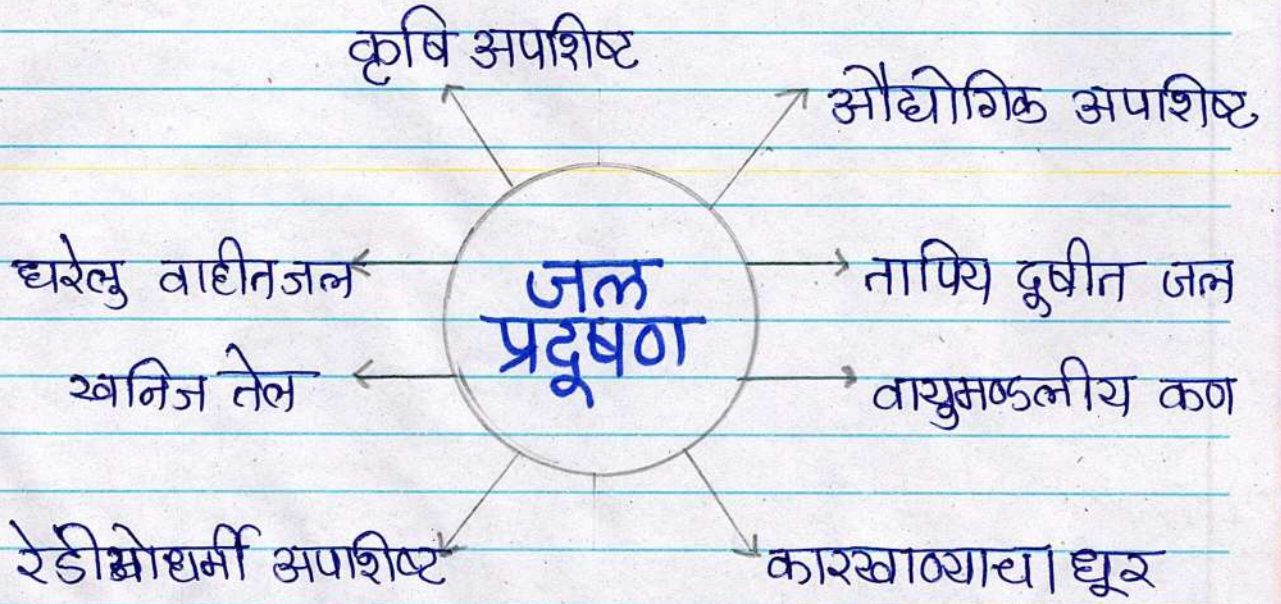 कृषि अपशिष्ट
औद्योगिक अपशिष्ट
घरेलु वाहीतजल
जल
प्रदूषण
तापिय दूषीत जल
खनिज तेल
वायुमण्डलीय कण
रेडीओधर्मी अपशिष्ट
कारखाण्याचा धूर